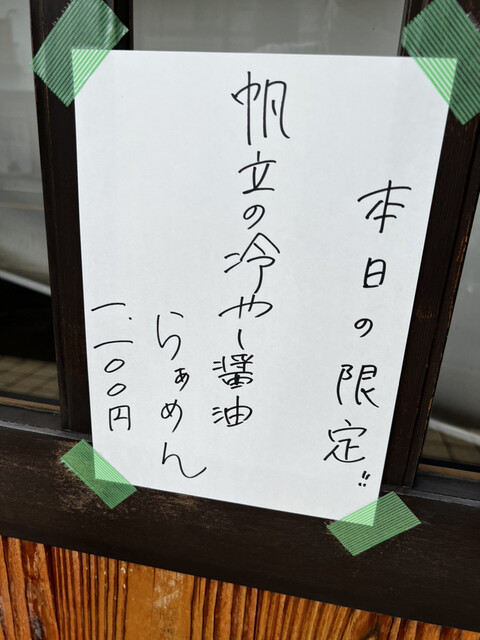 本日の限定!!
帆立の冷やし醤油
らぁめん
一、一〇〇円